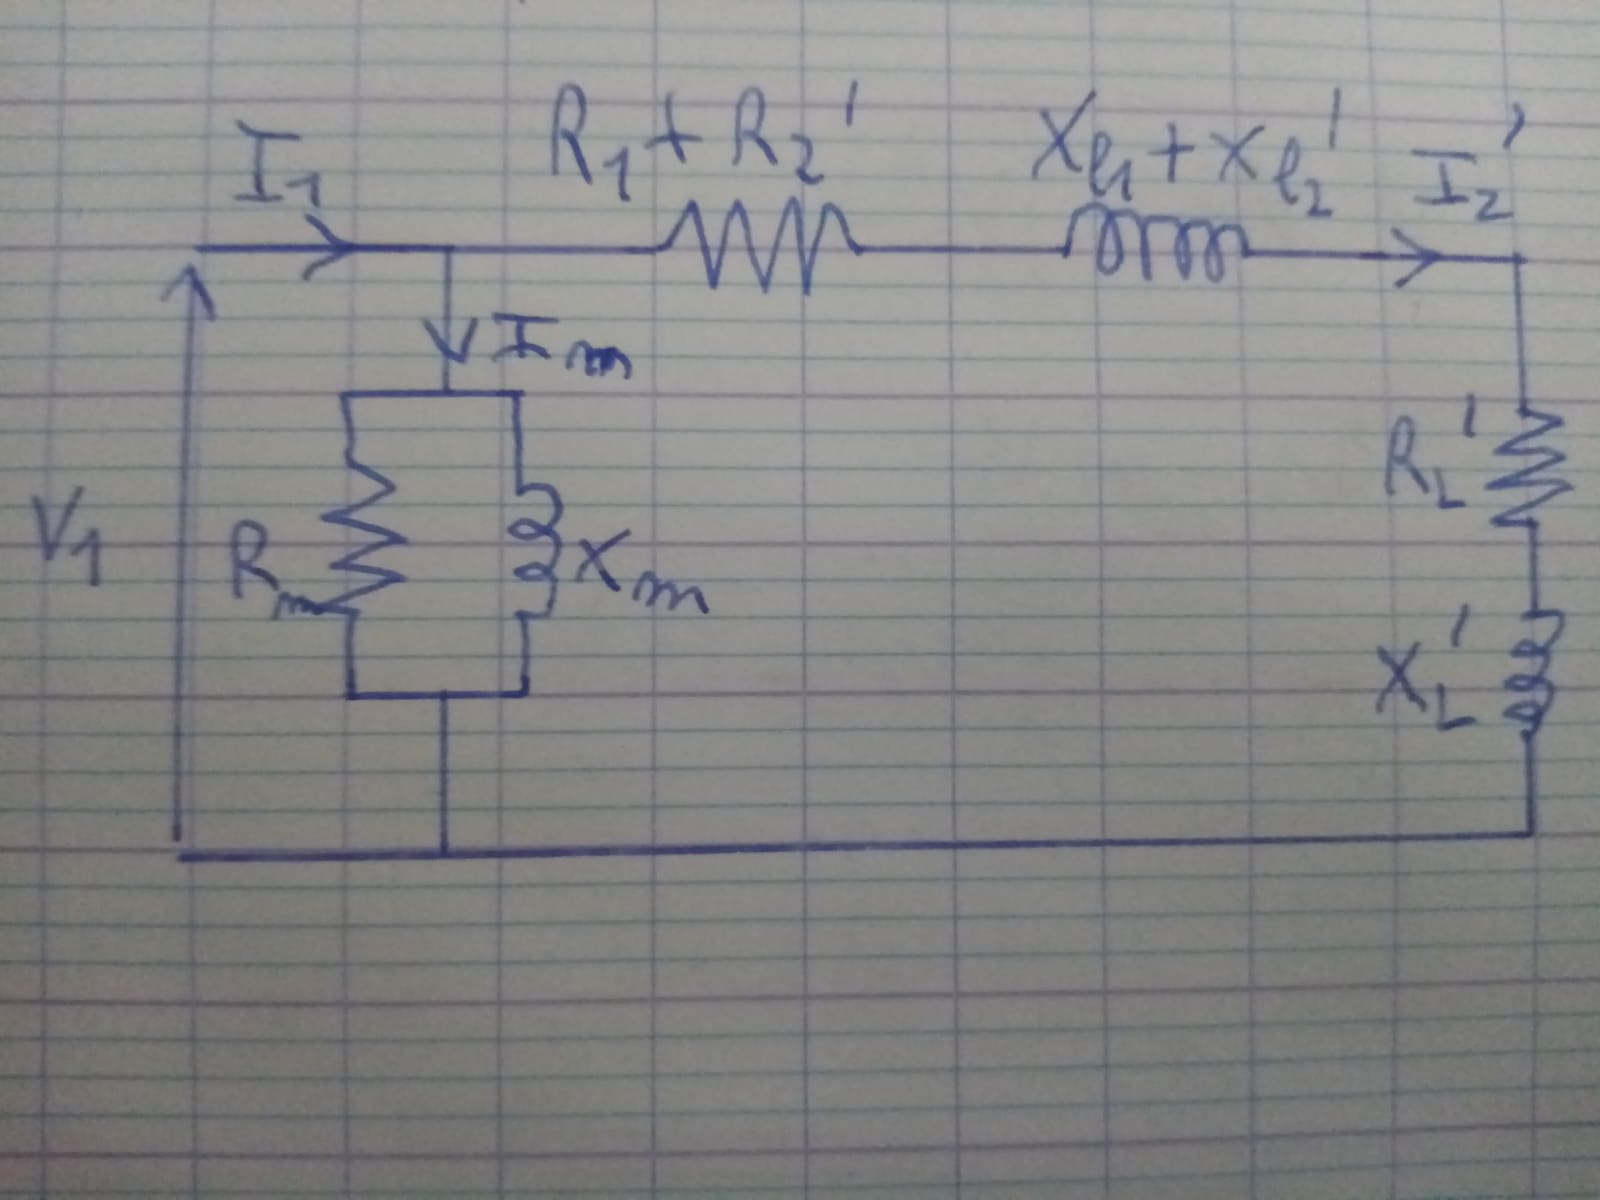 I₁
R₁ + R₂'
Xℓ₁ + Xℓ₂'
I₂'
Iₘ
V₁
Rₘ
Xₘ
R_L'
X_L'